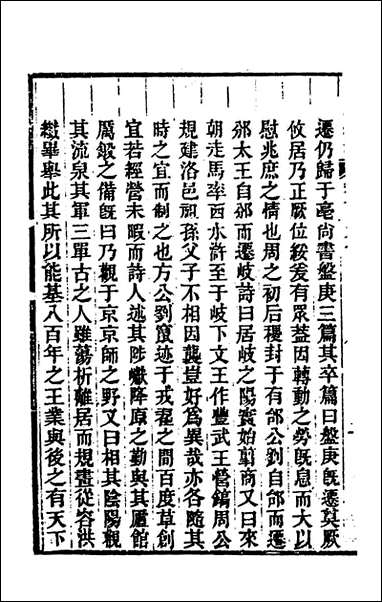 遷仍歸于亳尚書盤庚三篇其卒篇曰盤庚旣遷奠厥
攸居乃正厥位綏爰有眾蓋因轉動之勞旣息而大以
慰兆庶之情也周之初后稷封于有邰公劉自邰而遷
邠太王自邠而遷岐詩曰居岐之陽實始翦商又曰來
朝走馬率西水滸至于岐下文王作豐武王營鎬周公
規建洛邑祖孫父子不相因襲豈好為異哉亦各隨其
時之宜而制之也方公劉竄迹于戎翟之間百度草創
宜若經營未暇而詩人述其陟巘降原之勤與其廬館
厲鍛之備旣曰乃觀于京京師之野又曰相其陰陽觀
其流泉其軍三單古之人雖蕩析離居而規畫從容洪
纎畢舉此其所以能基八百年之王業與後之有天下